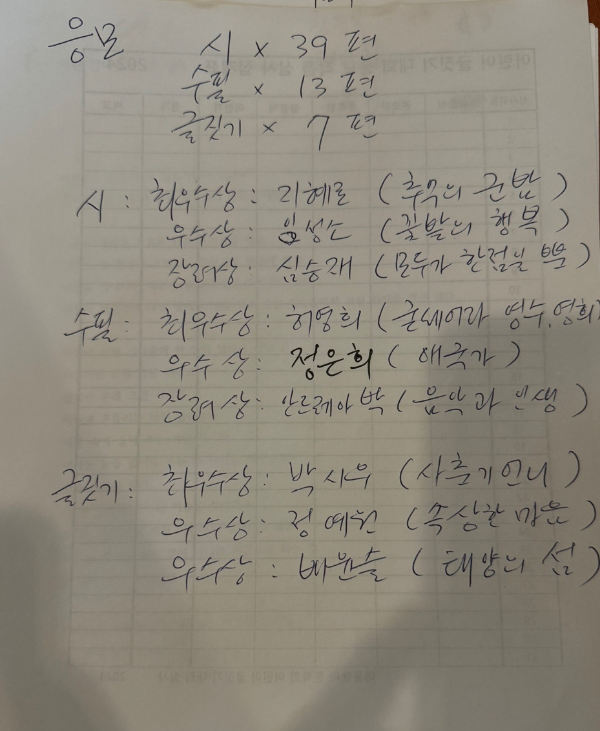 응모 시 x 39 편
수필 x 13 편
글짓기 x 7 편
시 : 최우수상 : 리혜로 (추억의 군밤)
우수상 : 임성소 (꽃밭의 행복)
장려상 : 심승재 (모두가 한점일 뿐)
수필 : 최우수상 : 허영희 (굳세어라 영수.영희)
우수상 : 정은희 (애국가)
장려상 : 안드레아 박 (음악과 인생)
글짓기 : 최우수상 : 박시우 (사춘기 언니)
우수상 : 정예원 (속상한 마음)
우수상 : 배윤슬 (태양의 섬)